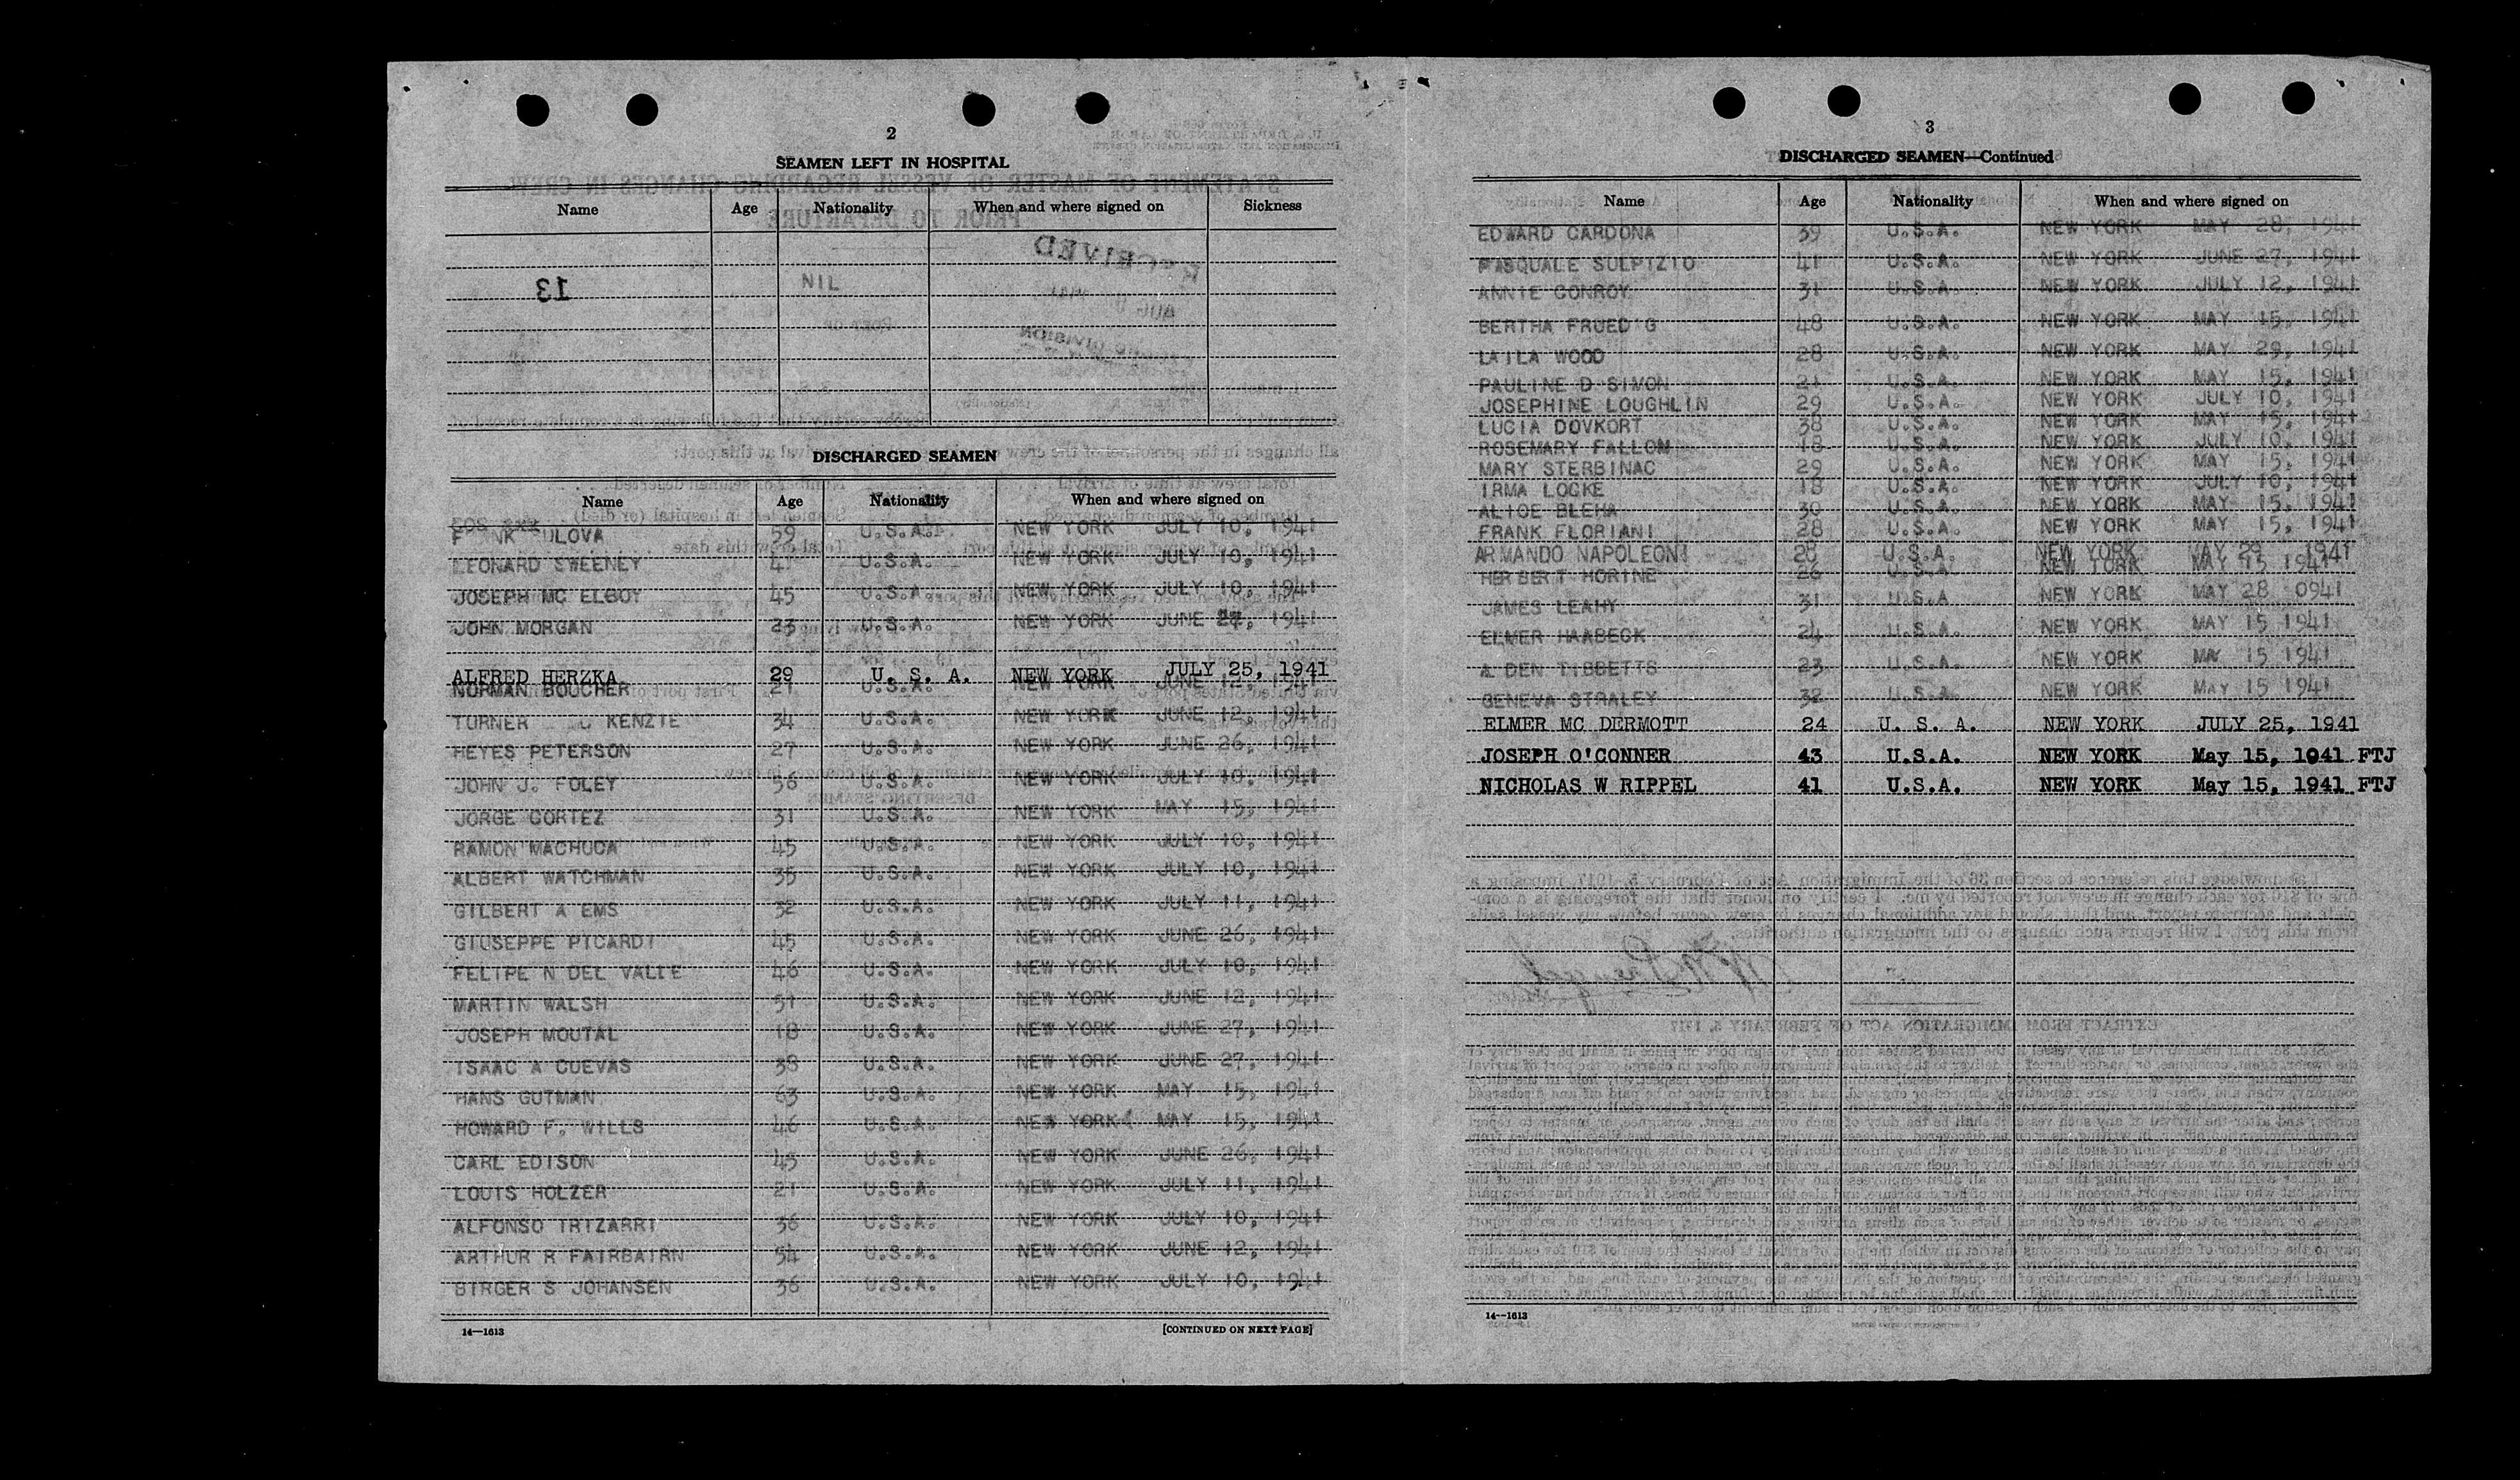 2
SEAMEN LEFT IN HOSPITAL
Name Age Nationality When and where signed on Sickness
NIL
DISCHARGED SEAMEN
Name Age Nationality When and where signed on
59 U.S.A. NEW YORK JULY 10, 1941
LEONARD SWEENEY U.S.A. NEW YORK JULY 10, 1941
JOSEPH MC ELBOY 45 U.S.A. NEW YORK JULY 10, 1941
JOHN MORGAN 23 U.S.A. NEW YORK JUNE 27, 1941
ALFRED HERZKA 29 U. S. A. NEW YORK JULY 25, 1941
NORMAN BOUCHER 21 U.S.A. NEW YORK JUNE 12, 1941
TURNER KENZIE 34 U.S.A. NEW YORK JUNE 12, 1941
HEYES PETERSON 27 U.S.A. NEW YORK JUNE 26, 1941
JOHN J. FOLEY 56 U.S.A. NEW YORK JULY 10, 1941
JORGE CORTEZ 31 U.S.A. NEW YORK MAY 15, 1941
RAMON MACHUCA 45 U.S.A. NEW YORK JULY 10, 1941
ALBERT WATCHMAN 35 U.S.A. NEW YORK JULY 10, 1941
GILBERT A EMS 32 U.S.A. NEW YORK JULY 11, 1941
GIUSEPPE PICARDI 45 U.S.A. NEW YORK JUNE 26, 1941
FELIPE N DEL VALLE 46 U.S.A. NEW YORK JULY 10, 1941
MARTIN WALSH 51 U.S.A. NEW YORK JUNE 12, 1941
JOSEPH MOUTAL 18 U.S.A. NEW YORK JUNE 27, 1941
ISAAC A CUEVAS 38 U.S.A. NEW YORK JUNE 27, 1941
HANS GUTMAN 63 U.S.A. NEW YORK MAY 15, 1941
HOWARD F. WILLS 46 U.S.A. NEW YORK MAY 15, 1941
CARL EDISON 43 U.S.A. NEW YORK JUNE 26, 1941
LOUIS HOLZER 21 U.S.A. NEW YORK JULY 11, 1941
ALFONSO IRIZARRI 36 U.S.A. NEW YORK JULY 10, 1941
ARTHUR R FAIRBAIRN 54 U.S.A. NEW YORK JUNE 12, 1941
BIRGER S JOHANSEN 36 U.S.A. NEW YORK JULY 10, 1941
14—1613 [CONTINUED ON NEXT PAGE]
3
DISCHARGED SEAMEN—Continued
Name Age Nationality When and where signed on
EDWARD CARDONA 39 U.S.A. NEW YORK MAY 28, 1941
PASQUALE SULPIZIO 41 U.S.A. NEW YORK JUNE 27, 1941
ANNIE CONROY 31 U.S.A. NEW YORK JULY 12, 1941
BERTHA FRUED'G 48 U.S.A. NEW YORK MAY 15, 1941
LAILA WOOD 28 U.S.A. NEW YORK MAY 29, 1941
PAULINE D SIMON 21 U.S.A. NEW YORK MAY 15, 1941
JOSEPHINE LOUGHLIN 29 U.S.A. NEW YORK JULY 10, 1941
LUCIA DOVKORT 38 U.S.A. NEW YORK MAY 15, 1941
ROSEMARY FALLON 18 U.S.A. NEW YORK JULY 10, 1941
MARY STERBINAC 29 U.S.A. NEW YORK MAY 15, 1941
IRMA LOCKE 18 U.S.A. NEW YORK JULY 10, 1941
ALICE BLEHA 30 U.S.A. NEW YORK MAY 15, 1941
FRANK FLORIANI 28 U.S.A. NEW YORK MAY 15, 1941
ARMANDO NAPOLEONI 28 U.S.A. NEW YORK MAY 29 1941
HERBERT HORINE 26 U.S.A. NEW YORK MAY 15 1941
JAMES LEAHY 31 U.S.A NEW YORK MAY 28 0941
ELMER HAABECK 24 U.S.A. NEW YORK MAY 15 1941
A DEN TIBBETTS 23 U.S.A. NEW YORK MAY 15 1941
GENEVA STRALEY 32 U.S.A NEW YORK MAY 15 1941
ELMER MC DERMOTT 24 U. S. A. NEW YORK JULY 25, 1941
JOSEPH O'CONNER 43 U.S.A. NEW YORK May 15, 1941 FTJ
NICHOLAS W RIPPEL 41 U.S.A. NEW YORK May 15, 1941 FTJ
14—1613